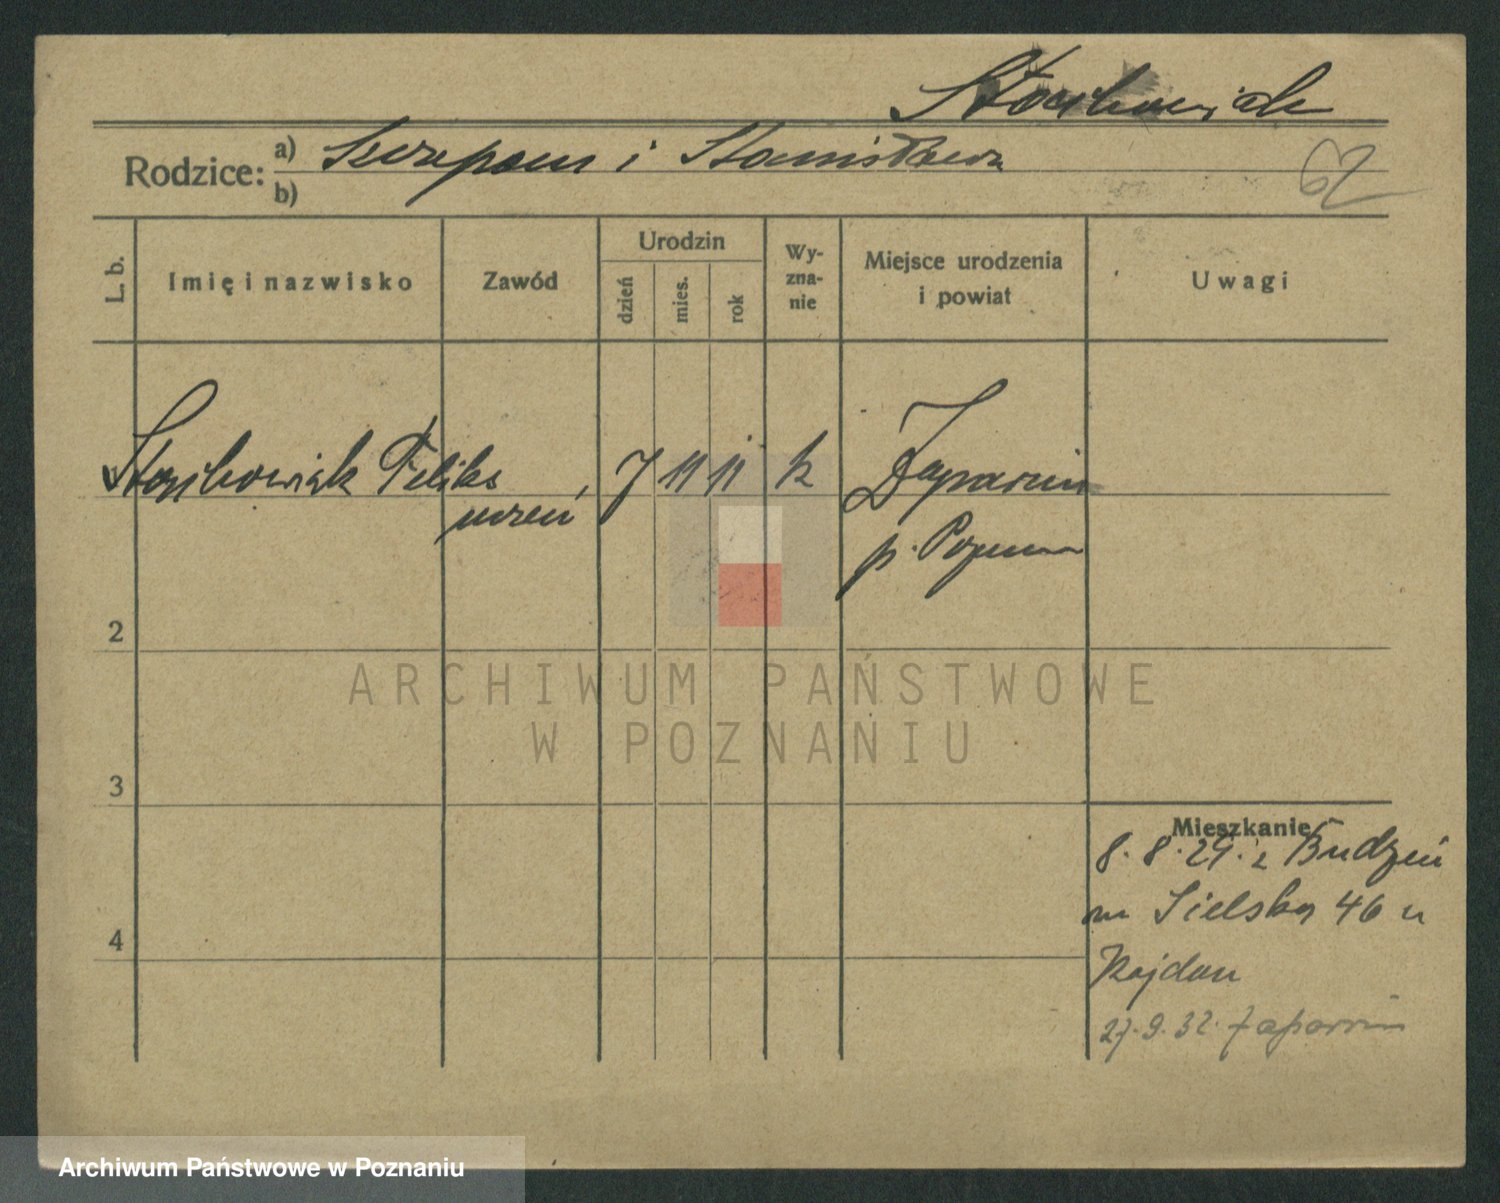 Stachowiak
Rodzice: a) Szczepan i Stanisława
b)
62
L. b.
Imię i nazwisko
Zawód
Urodzin
dzień
mies.
rok
Wy-
zna-
nie
Miejsce urodzenia
i powiat
Uwagi
Stachowiak Feliks
uczeń
7 11 11 k
p. Poznań
2
3
4
Mieszkanie
8. 8. 29. z Budzyń
na Sielska 46 u
Kajdan
27. 9. 32.
ARCHIWUM PAŃSTWOWE
W POZNANIU
Archiwum Państwowe w Poznaniu